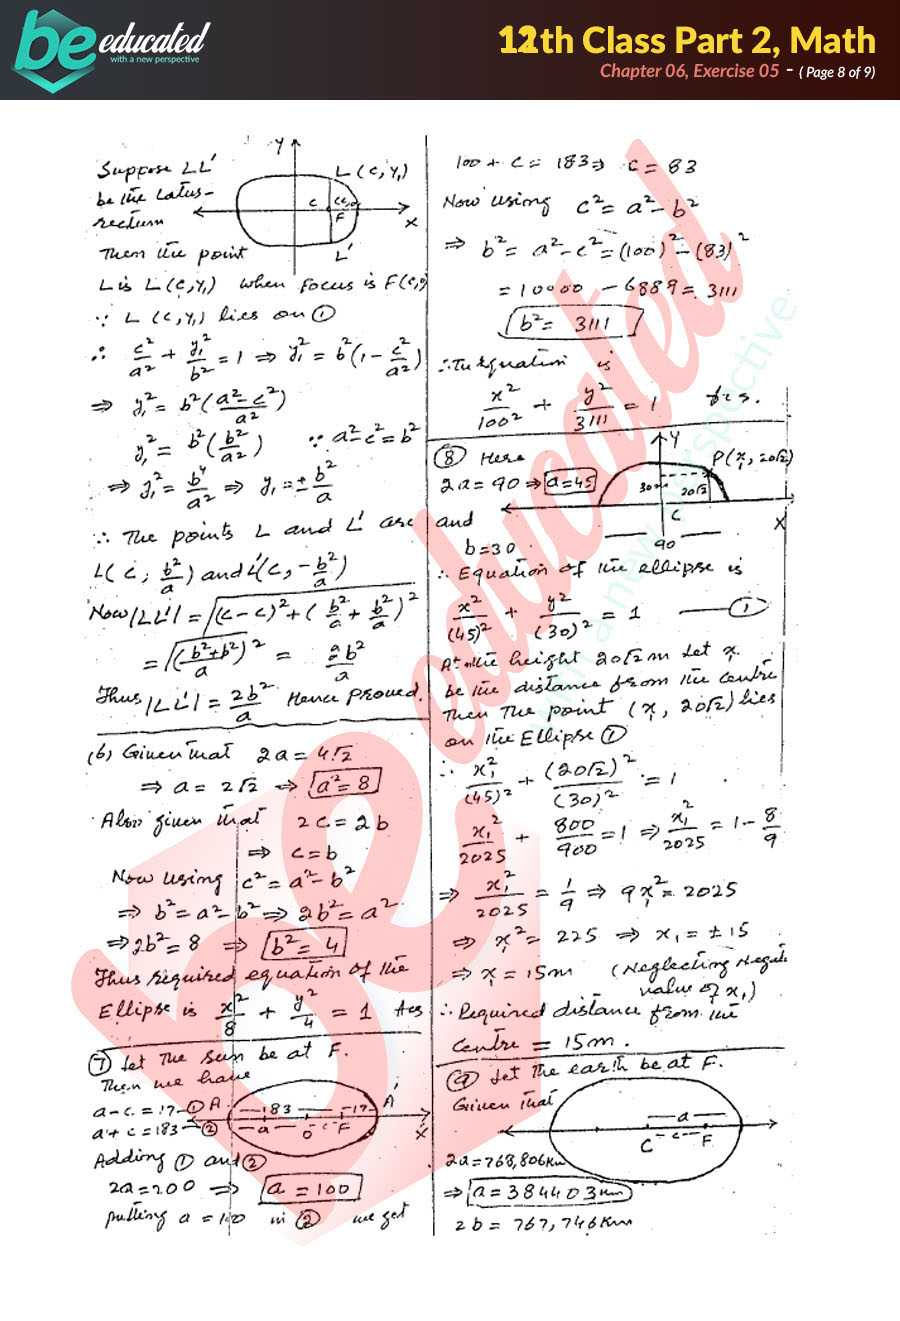 be educated
with a new perspective
12th Class Part 2, Math
Chapter 06, Exercise 05 - ( Page 8 of 9)
Suppose LL'
be the Latus-
rectum
Then the point
Y
L (c, y₁)
c
F
X
L'
L is L(c, y₁) when focus is F(c,0)
∵ L (c, y₁) lies on ①
∴ c²/a² + y₁²/b² = 1 ⇒ y₁² = b²(1 - c²/a²)
⇒ y₁² = b²(a²-c²/a²)
y₁² = b²(b²/a²) ∵ a²-c² = b²
⇒ y₁² = b⁴/a² ⇒ y₁ = ± b²/a
∵ The points L and L' are
L(c, b²/a) and L'(c, -b²/a)
Now |LL'| = √(c-c)² + (b²/a + b²/a)²
= √(b²+b²/a)² = 2b²/a
Thus |LL'| = 2b²/a Hence Proved.
(b) Given that 2a = 4√2
⇒ a = 2√2 ⇒ a² = 8
Also given that 2c = 2b
⇒ c = b
Now using c² = a² - b²
⇒ b² = a² - b² ⇒ 2b² = a²
⇒ 2b² = 8 ⇒ b² = 4
Thus required equation of the
Ellipse is x²/8 + y²/4 = 1 Ans
⑦ Let the sun be at F.
Then we have
a - c = 17 - ①
a + c = 183 - ②
A
183
17
A'
a
O
c
F
X
Adding ① and ②
2a = 200 ⇒ a = 100
putting a = 100 in ② we get
100 + c = 183 ⇒ c = 83
Now using c² = a² - b²
⇒ b² = a² - c² = (100)² - (83)²
= 10000 - 6889 = 3111
b² = 3111
∴ The Equation is
x²/100² + y²/3111 = 1 Ans.
⑧ Here
2a = 90 ⇒ a = 45
and
b = 30
Y
P(x₁, 20√2)
30m
20√2
C
X
90
∴ Equation of the ellipse is
x²/(45)² + y²/(30)² = 1 — ①
At the height 20√2 m Let x₁
be the distance from the centre
Then the point (x₁, 20√2) lies
on the Ellipse ①
∴ x₁²/(45)² + (20√2)²/(30)² = 1
x₁²/2025 + 800/900 = 1 ⇒ x₁²/2025 = 1 - 8/9
⇒ x₁²/2025 = 1/9 ⇒ 9x₁² = 2025
⇒ x₁² = 225 ⇒ x₁ = ± 15
⇒ x₁ = 15m (Neglecting Negati
value of x₁)
∴ Required distance from the
centre = 15m.
⑨ Let the earth be at F.
Given that
a
C
c
F
2a = 768,806 Km
⇒ a = 384403 km
2b = 767,746 Km
be educated
with a new perspective